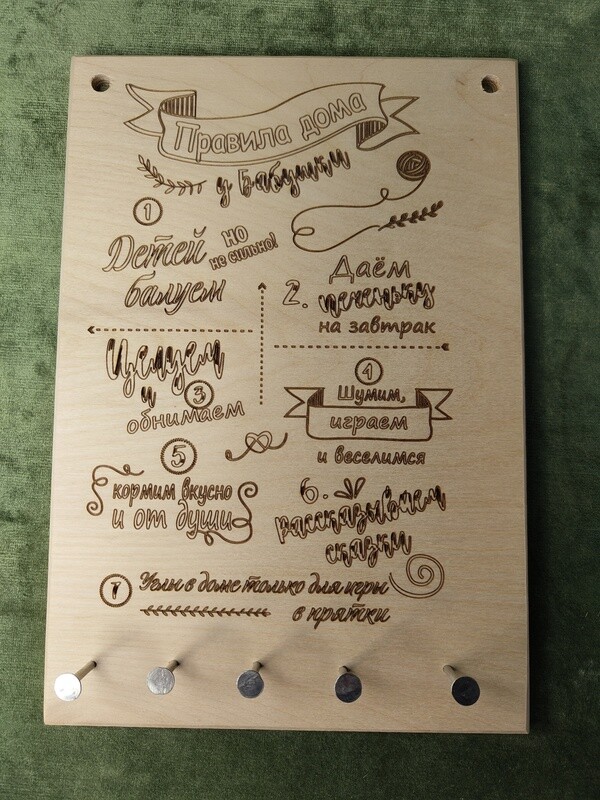 Правила дома
у бабушки
1
Детей но
не сильно!
балуем
2. Даём
печеньку
на завтрак
Целуем
и 3
обнимаем
4
Шумим,
играем
и веселимся
5
кормим вкусно
и от души
6.
рассказываем
сказки
7 Углы в доме только для игры
в прятки